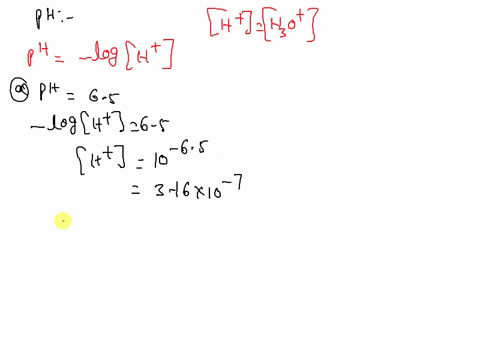 pH:-
[H⁺]=[H₃O⁺]
pH = -log[H⁺]
ⓐ pH = 6.5
-log[H⁺]=6.5
[H⁺] = 10⁻⁶·⁵
= 3.16×10⁻⁷